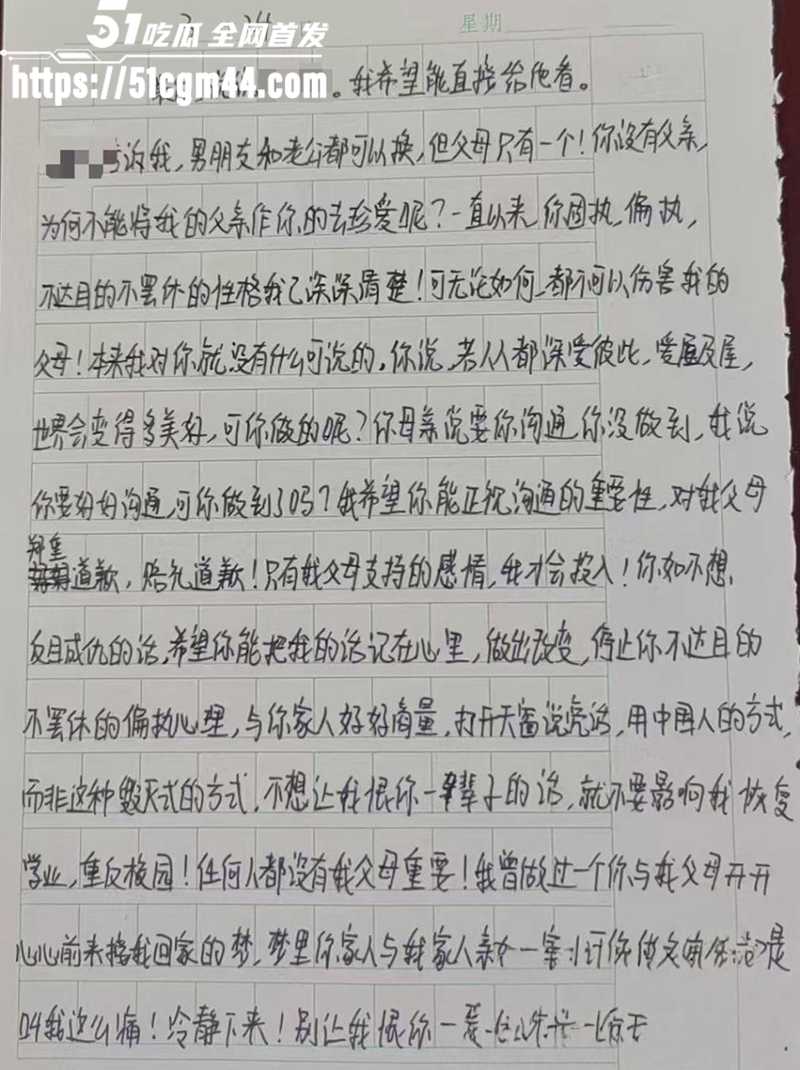 51吃瓜 全网首发
https://51cgm44.com
星期
。我希望能直接给他看。
诉我,男朋友和老公都可以换,但父母只有一个!你没有父亲,
为何不能将我的父亲作你的去珍爱呢?一直以来,你固执,偏执,
不达目的不罢休的性格我已深深清楚!可无论如何,都不可以伤害我的
父母!本来我对你就没有什么可说的,你说,若人人都深爱彼此,爱屋及屋,
世界会变得多美好,可你做的呢?你母亲说要你沟通,你没做到,我说
你要好好沟通,可你做到了吗?我希望你能正视沟通的重要性,对我父母
郑重
道歉,赔礼道歉!只有我父母支持的感情,我才会投入!你如不想
反目成仇的话,希望你能把我的话记在心里,做出改变,停止你不达目的
不罢休的偏执心理,与你家人好好商量,打开天窗说亮话,用中国人的方式,
而非这种毁灭式的方式,不想让我恨你一辈子的话,就不要影响我恢复
学业,重反校园!任何人都没有我父母重要!我曾做过一个你与我父母开开
心心前来接我回家的梦,梦里你家人与我家人亲如一家
我这么痛!冷静下来!别让我恨你一